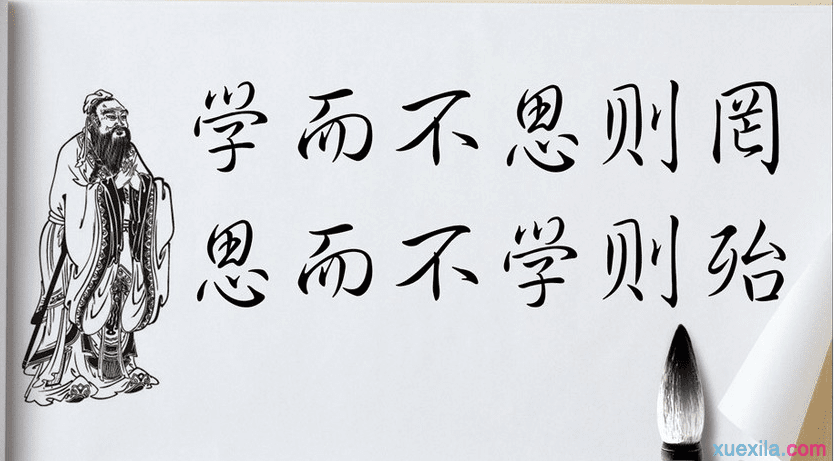 学而不思则罔
思而不学则殆
xuexila.com